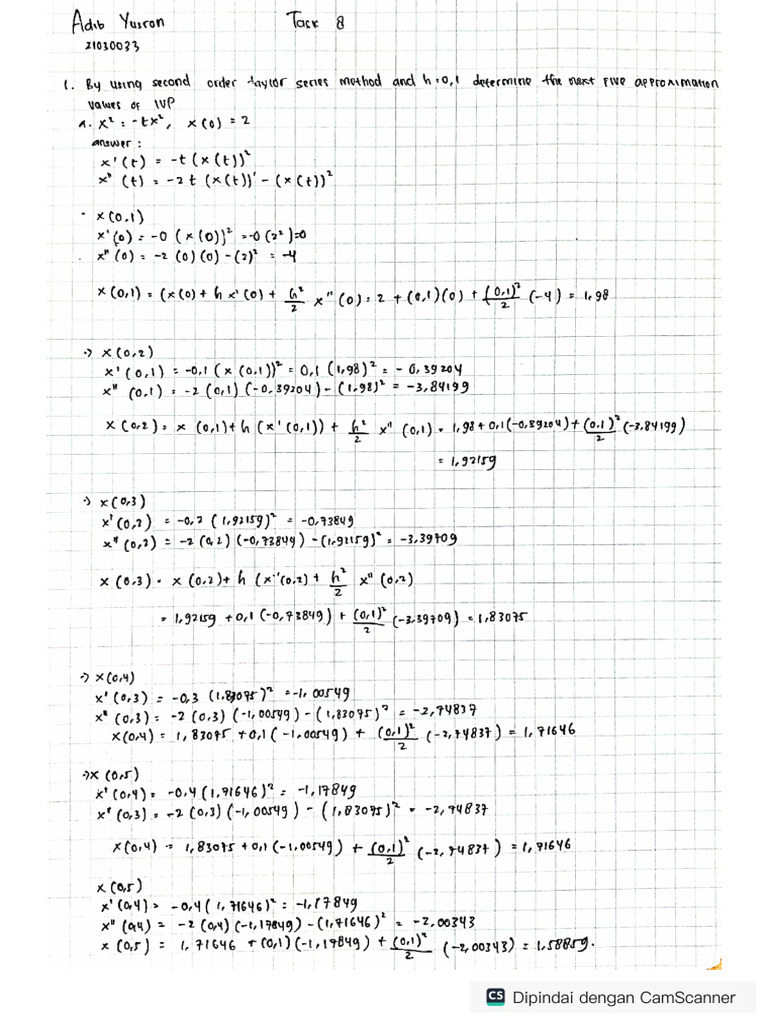 Adib Yusron Task 8
21030033
1. By using second order taylor series method and h=0,1 determine the next five approximation
values of IVP
a. x² = -tx², x(0) = 2
answer :
x'(t) = -t (x(t))²
x"(t) = -2t (x(t))' - (x(t))²
- x(0,1)
x'(0) = -0 (x(0))² = -0 (2²)=0
x"(0) = -2 (0)(0) - (2)² = -4
x(0,1) = (x(0) + h x'(0) + h²/2 x"(0) = 2 + (0,1)(0) + (0,1)²/2 (-4) = 1,98
-> x(0,2)
x'(0,1) = -0,1 (x(0,1))² = 0,1 (1,98)² = -0,39204
x"(0,1) = -2 (0,1)(-0,39204) - (1,98)² = -3,84199
x(0,2) = x(0,1) + h (x'(0,1)) + h²/2 x"(0,1) = 1,98 + 0,1(-0,39204) + (0,1)²/2 (-3,84199)
= 1,92159
-> x(0,3)
x'(0,2) = -0,2 (1,92159)² = -0,73849
x"(0,2) = -2 (0,2) (-0,73849) - (1,92159)² = -3,39709
x(0,3) = x(0,2) + h (x'(0,2) + h²/2 x"(0,2)
= 1,92159 + 0,1 (-0,73849) + (0,1)²/2 (-3,39709) = 1,83075
-> x(0,4)
x'(0,3) = -0,3 (1,83075)² = -1,00549
x"(0,3) = -2 (0,3) (-1,00549) - (1,83075)² = -2,74837
x(0,4) = 1,83075 + 0,1 (-1,00549) + (0,1)²/2 (-2,74837) = 1,71646
-> x(0,5)
x'(0,4) = -0,4 (1,71646)² = -1,17849
x"(0,3) = -2 (0,3) (-1,00549) - (1,83075)² = -2,74837
x(0,4) = 1,83075 + 0,1 (-1,00549) + (0,1)²/2 (-2,74837) = 1,71646
x(0,5)
x'(0,4) = -0,4 (1,71646)² = -1,17849
x"(0,4) = -2 (0,4) (-1,17849) - (1,71646)² = -2,00343
x(0,5) = 1,71646 + (0,1) (-1,17849) + (0,1)²/2 (-2,00343) = 1,58859.
CS Dipindai dengan CamScanner